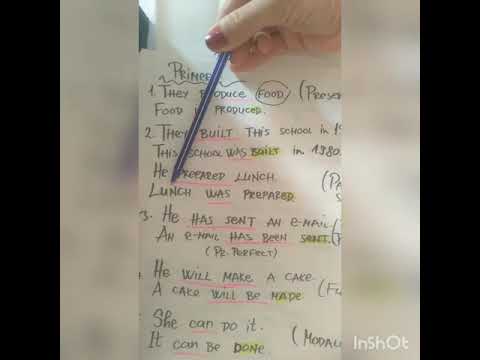 PRIMER
1. THEY PRODUCE FOOD. (PRESE
FOOD IS PRODUCED.
2. THEY BUILT THIS SCHOOL in 19
THIS SCHOOL WAS BUILT in 1980.
HE PREPARED LUNCH. (PA
LUNCH WAS PREPARED S
3. HE HAS SENT AN E-MAIL.
AN E-MAIL HAS BEEN SENT.
(PR. PERFECT)
HE WILL MAKE A CAKE.
A CAKE WILL BE MADE (FU
SHE can do it.
IT can BE DONE (MODAL
InShOt